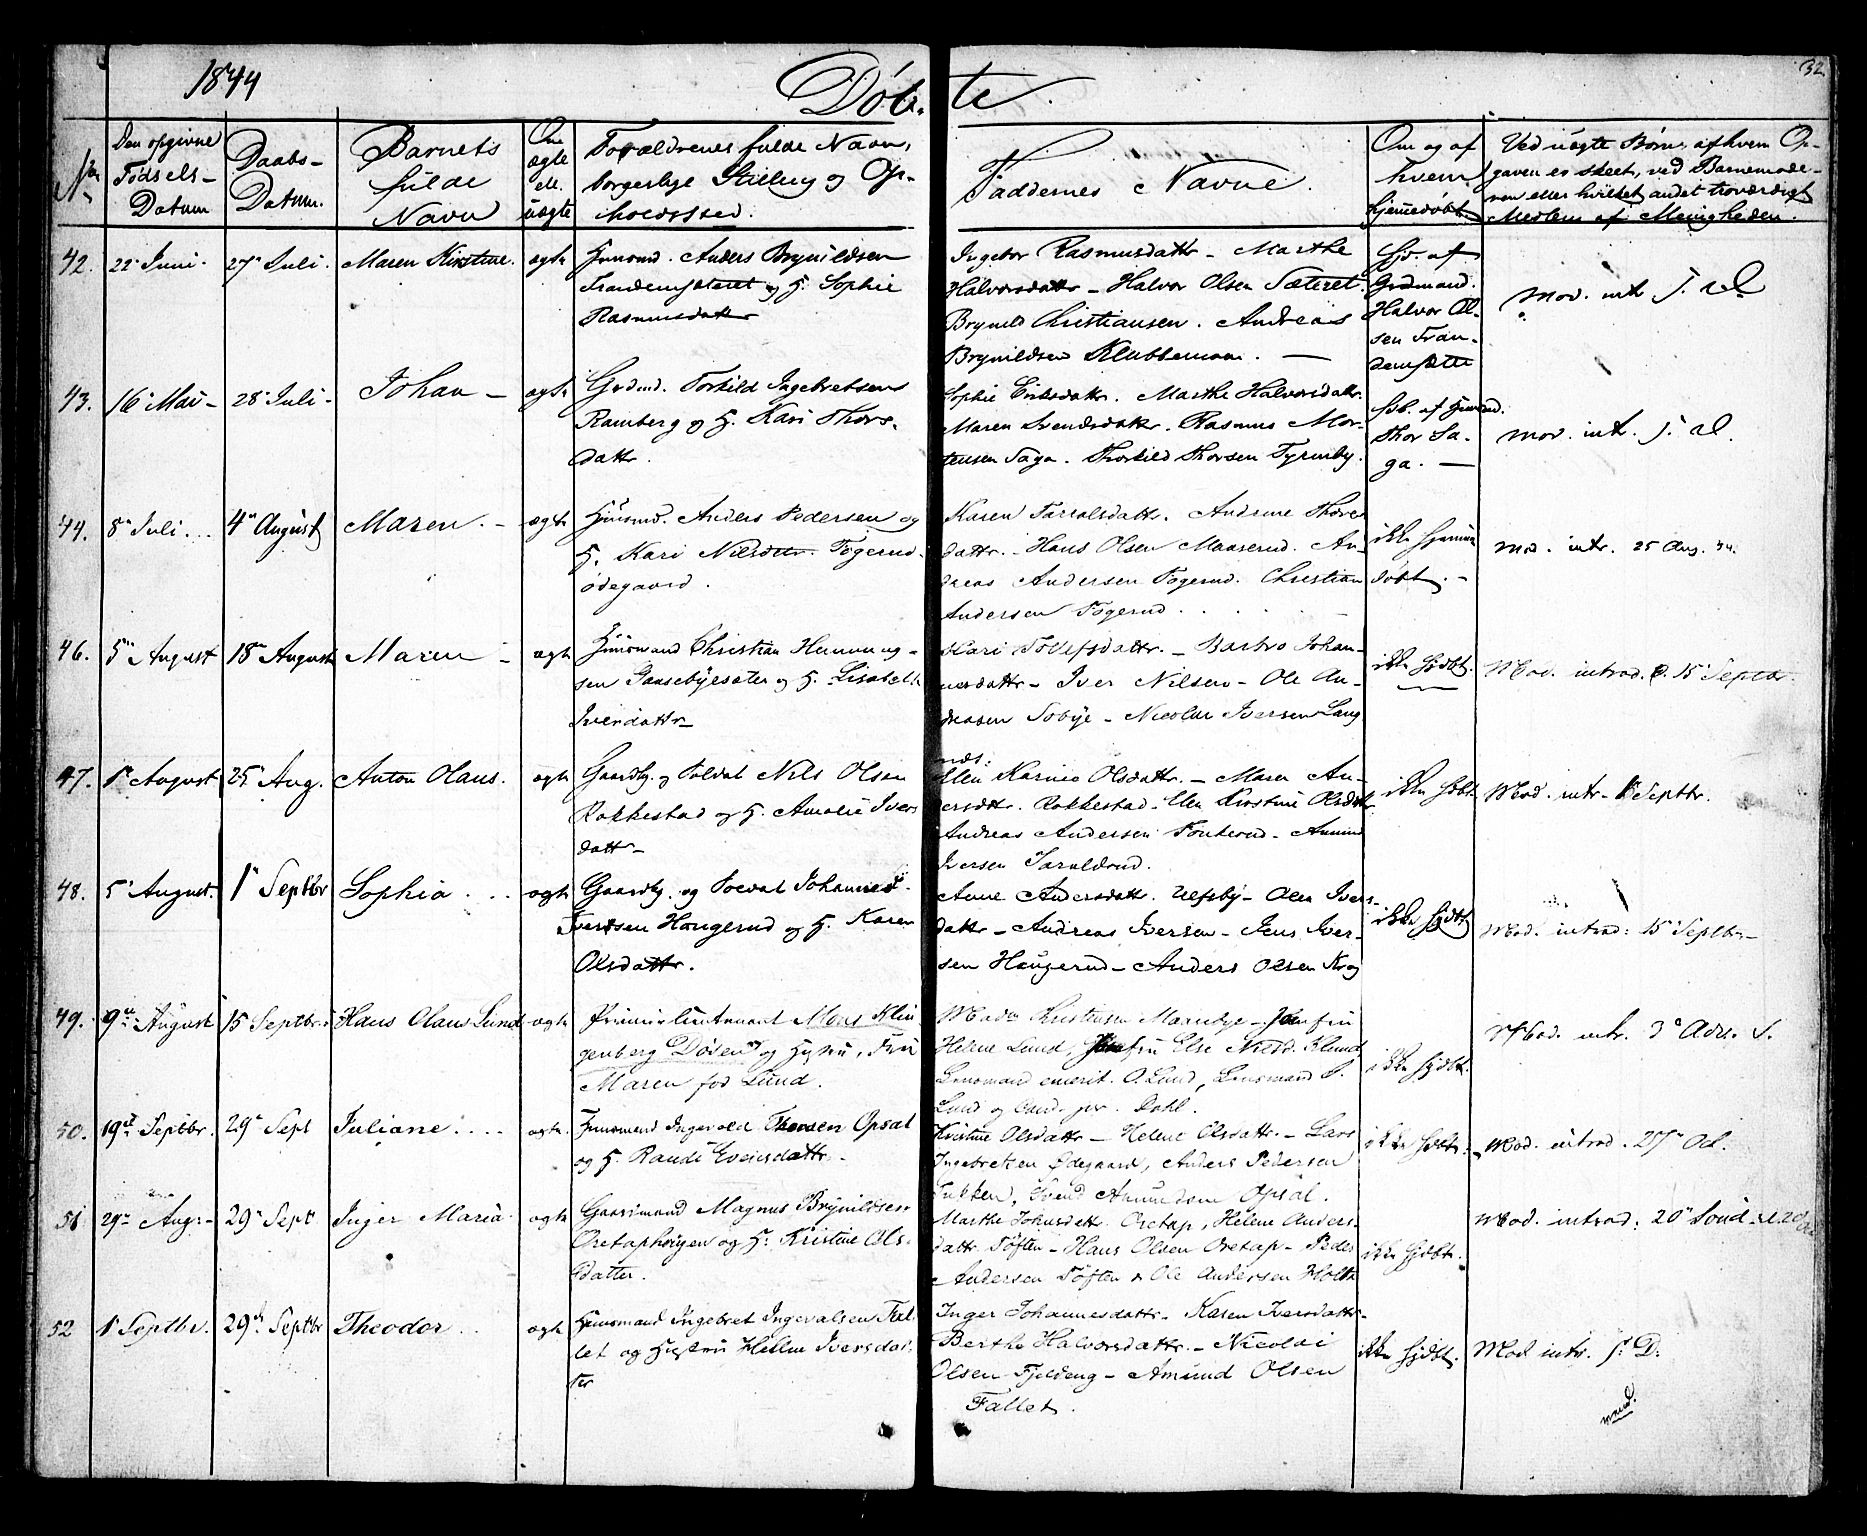 1844
Døb-te.
32
No
Den opgivne Fødsels-Datum
Daabs-Datum.
Barnets fulde Navn
Om ægte el. uægte
Forældrenes fulde Navn, borgerlige Stilling og Opholdssted.
Faddernes Navne.
Om og af hvem hjemmedøbt.
Ved uægte Børn, af hvem Opgaven er skeet, ved Barnemoderen eller hvilket andet troværdigt Medlem af Menigheden.
42. 22 Juni. 27 Juli. Maren Kirstine. ægte Huusmd. Anders Brynildsen
og H. Sophie
Rasmusdattr
Ingebor Rasmusdattr - Marthe
Halvorsdattr - Halvor Olsen Sæteret.
Brynild Christiansen. Andreas
Brynildsen
Hjd. af
Grdmand.
Halvor Ol-
sen Fran-
densætte
Mod. intr. s. d.
43. 16 Mai - 28 Juli - Johan - ægte Grdmd. Torkild Ingebretsen
Ramberg og H. Kari Thors-
dattr.
Sophie Eriksdattr. Marthe Halvorsdattr.
Maren Svendsdattr. Rasmus Mor-
tensen Saga. Thorkild Thorsen
Hjdb. af
Thor Sa-
ga. -
Mod. intr. s. d.
44. 8 Juli... 4 August Maren. - ægte Huusmd. Anders Pedersen og
H. Kari Nilsdttr. Togerud-
ødegaard.
Karen Taraldsdattr. Andrine Thore
dattr. - Hans Olsen Maaserud. An-
dreas Andersen Togerud. Christian
Andersen Togerud.
ikke hjemme
døbt. -
Mod. intr. 25 Aug. 44.
46. 5 August 18 August Maren - ægte Huusmand Christian Hennings-
sen Gaasebyesæter og H. Lisabeth
Iversdattr -
Kari Tollefsdattr. - Barbro Johan-
nesdattr - Iver Nilsen - Ole An-
dreasen Sobye - Nicolai Iversen Lang
næs:
ikke hjdbt.
Mod. introd. d. 15 Septbr.
47. 1 August 25 Aug. Anton Olaus. ægte Gaardbr. og Soldat Nils Olsen
Rakkestad og H. Amalie Ivers
dattr -
Elen Karine Olsdattr. - Maren An-
dersdttr. Rakkestad - Elen Kirstine Olsdttr
Andreas Andersen - Amund
Iversen
ikke hjdbt.
Mod. intr - 1 Septbr.
48. 5 August. 1 Septbr Sophia... ægte Gaardbr. og Soldat Johannes
Ivertsen Haugerud og H. Karen
Olsdattr.
Anne Andersdattr. Ulfsby - Olea Ivers-
dattr - Andreas Iversen - Jens Iver-
sen Haugerud - Anders Olsen Krog
ikke hjdbt
Mod. introd: 15 Septbr -
49. 9de August 15 Septbr. Hans Olaus Lund ægte Premierlieutenant Mons Klin
genberg Døsen og Hustru, Fru
Maren fød Lund.
Madm Kristensen - Jomfru
Helene Lund, Jomfru Else Nilsd. Klund
Lensmand emerit. O. Lund, Lensmand
Lund og Cand. jur. Dahl.
ikke hjdbt.
Mod. intr. 3 Adv. S.
50. 19de Septbr. 29 Sept Juliane.... ægte. Huusmand Ingevald Thoresen Opsal
og H. Randi Eveisdattr -
Kristine Olsdattr - Helene Olsdattr. - Lars
Ingebretsen Ødegaard, Anders Pedersen
Svend Amundsen Opsal.
ikke hjdbt.
Mod. introd. 27 Oct.
51 29 Aug: - 29 Sept Inger Maria ægte Gaardmand Magnus Brynildsen
og H. Kristine Ols-
datter.
Marthe Johnsdattr. Oretap, Helene Anders-
dattr Tøften - Hans Olsen Oretap - Peder
Andersen Tøften & Ole Andersen Holte
ikke hjdbt.
Mod. introd: 20 Sønd
52 1 Septbr. 29de Septbr Theodor.. ægte Huusmand Ingebret Ingevalsen Fal-
let og Hustru Helene Iversdat-
ter
Inger Johannesdattr - Karen Iversdattr -
Berthe Halvorsdattr. - Nicolai
Olsen Fjeldeng - Amund Olsen
Fallet.
ikke hjdbt.
Mod intr. s: D: